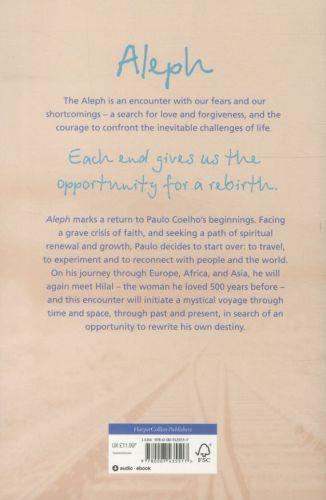 Aleph
The Aleph is an encounter with our fears and our
shortcomings – a search for love and forgiveness, and the
courage to confront the inevitable challenges of life.
Each end gives us the
opportunity for a rebirth.
Aleph marks a return to Paulo Coelho's beginnings. Facing
a grave crisis of faith, and seeking a path of spiritual
renewal and growth, Paulo decides to start over: to travel,
to experiment and to reconnect with people and the world.
On his journey through Europe, Africa, and Asia, he will
again meet Hilal – the woman he loved 500 years before –
and this encounter will initiate a mystical voyage through
time and space, through past and present, in search of an
opportunity to rewrite his own destiny.
HarperCollinsPublishers
UK £11.99*
audio · ebook
FSC